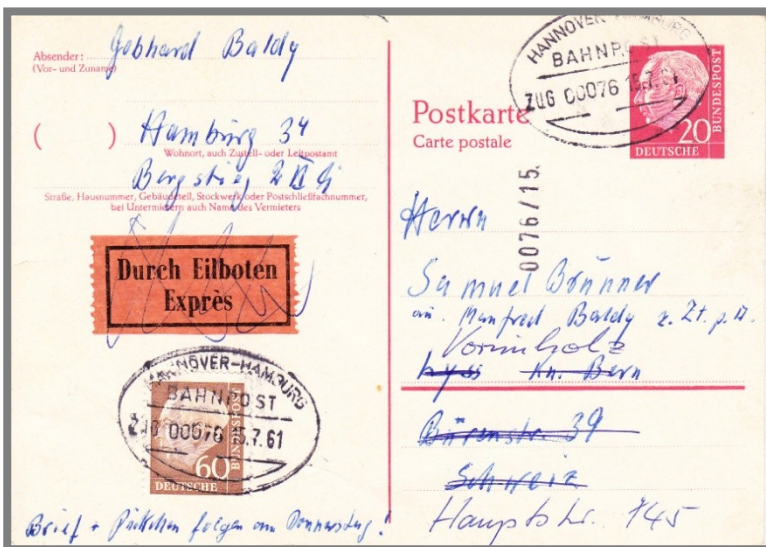 Absender: Gebhard Baldy
(Vor- und Zuname)
( ) Hamburg 34
Wohnort, auch Zustell- oder Leitpostamt
Straße, Hausnummer, Gebäudeteil, Stockwerk oder Postschließfachnummer,
bei Untermietern auch Name des Vermieters
Durch Eilboten
Exprès
HANNOVER-HAMBURG
BAHNPOST
ZUG 00076 15.7.61
60
DEUTSCHE
BUNDESPOST
Brief + Päckchen folgen am Donnerstag!
HANNOVER-HAMBURG
BAHNPOST
ZUG 00076 15.7.61
20
DEUTSCHE
BUNDESPOST
Postkarte
Carte postale
0076/15.
Herrn
Samuel Brunner
Manfred Baldy z. Zt.
Vormholz
Lyss Kn. Bern
Bürenstr. 39
Schweiz
Hauptstr. 145